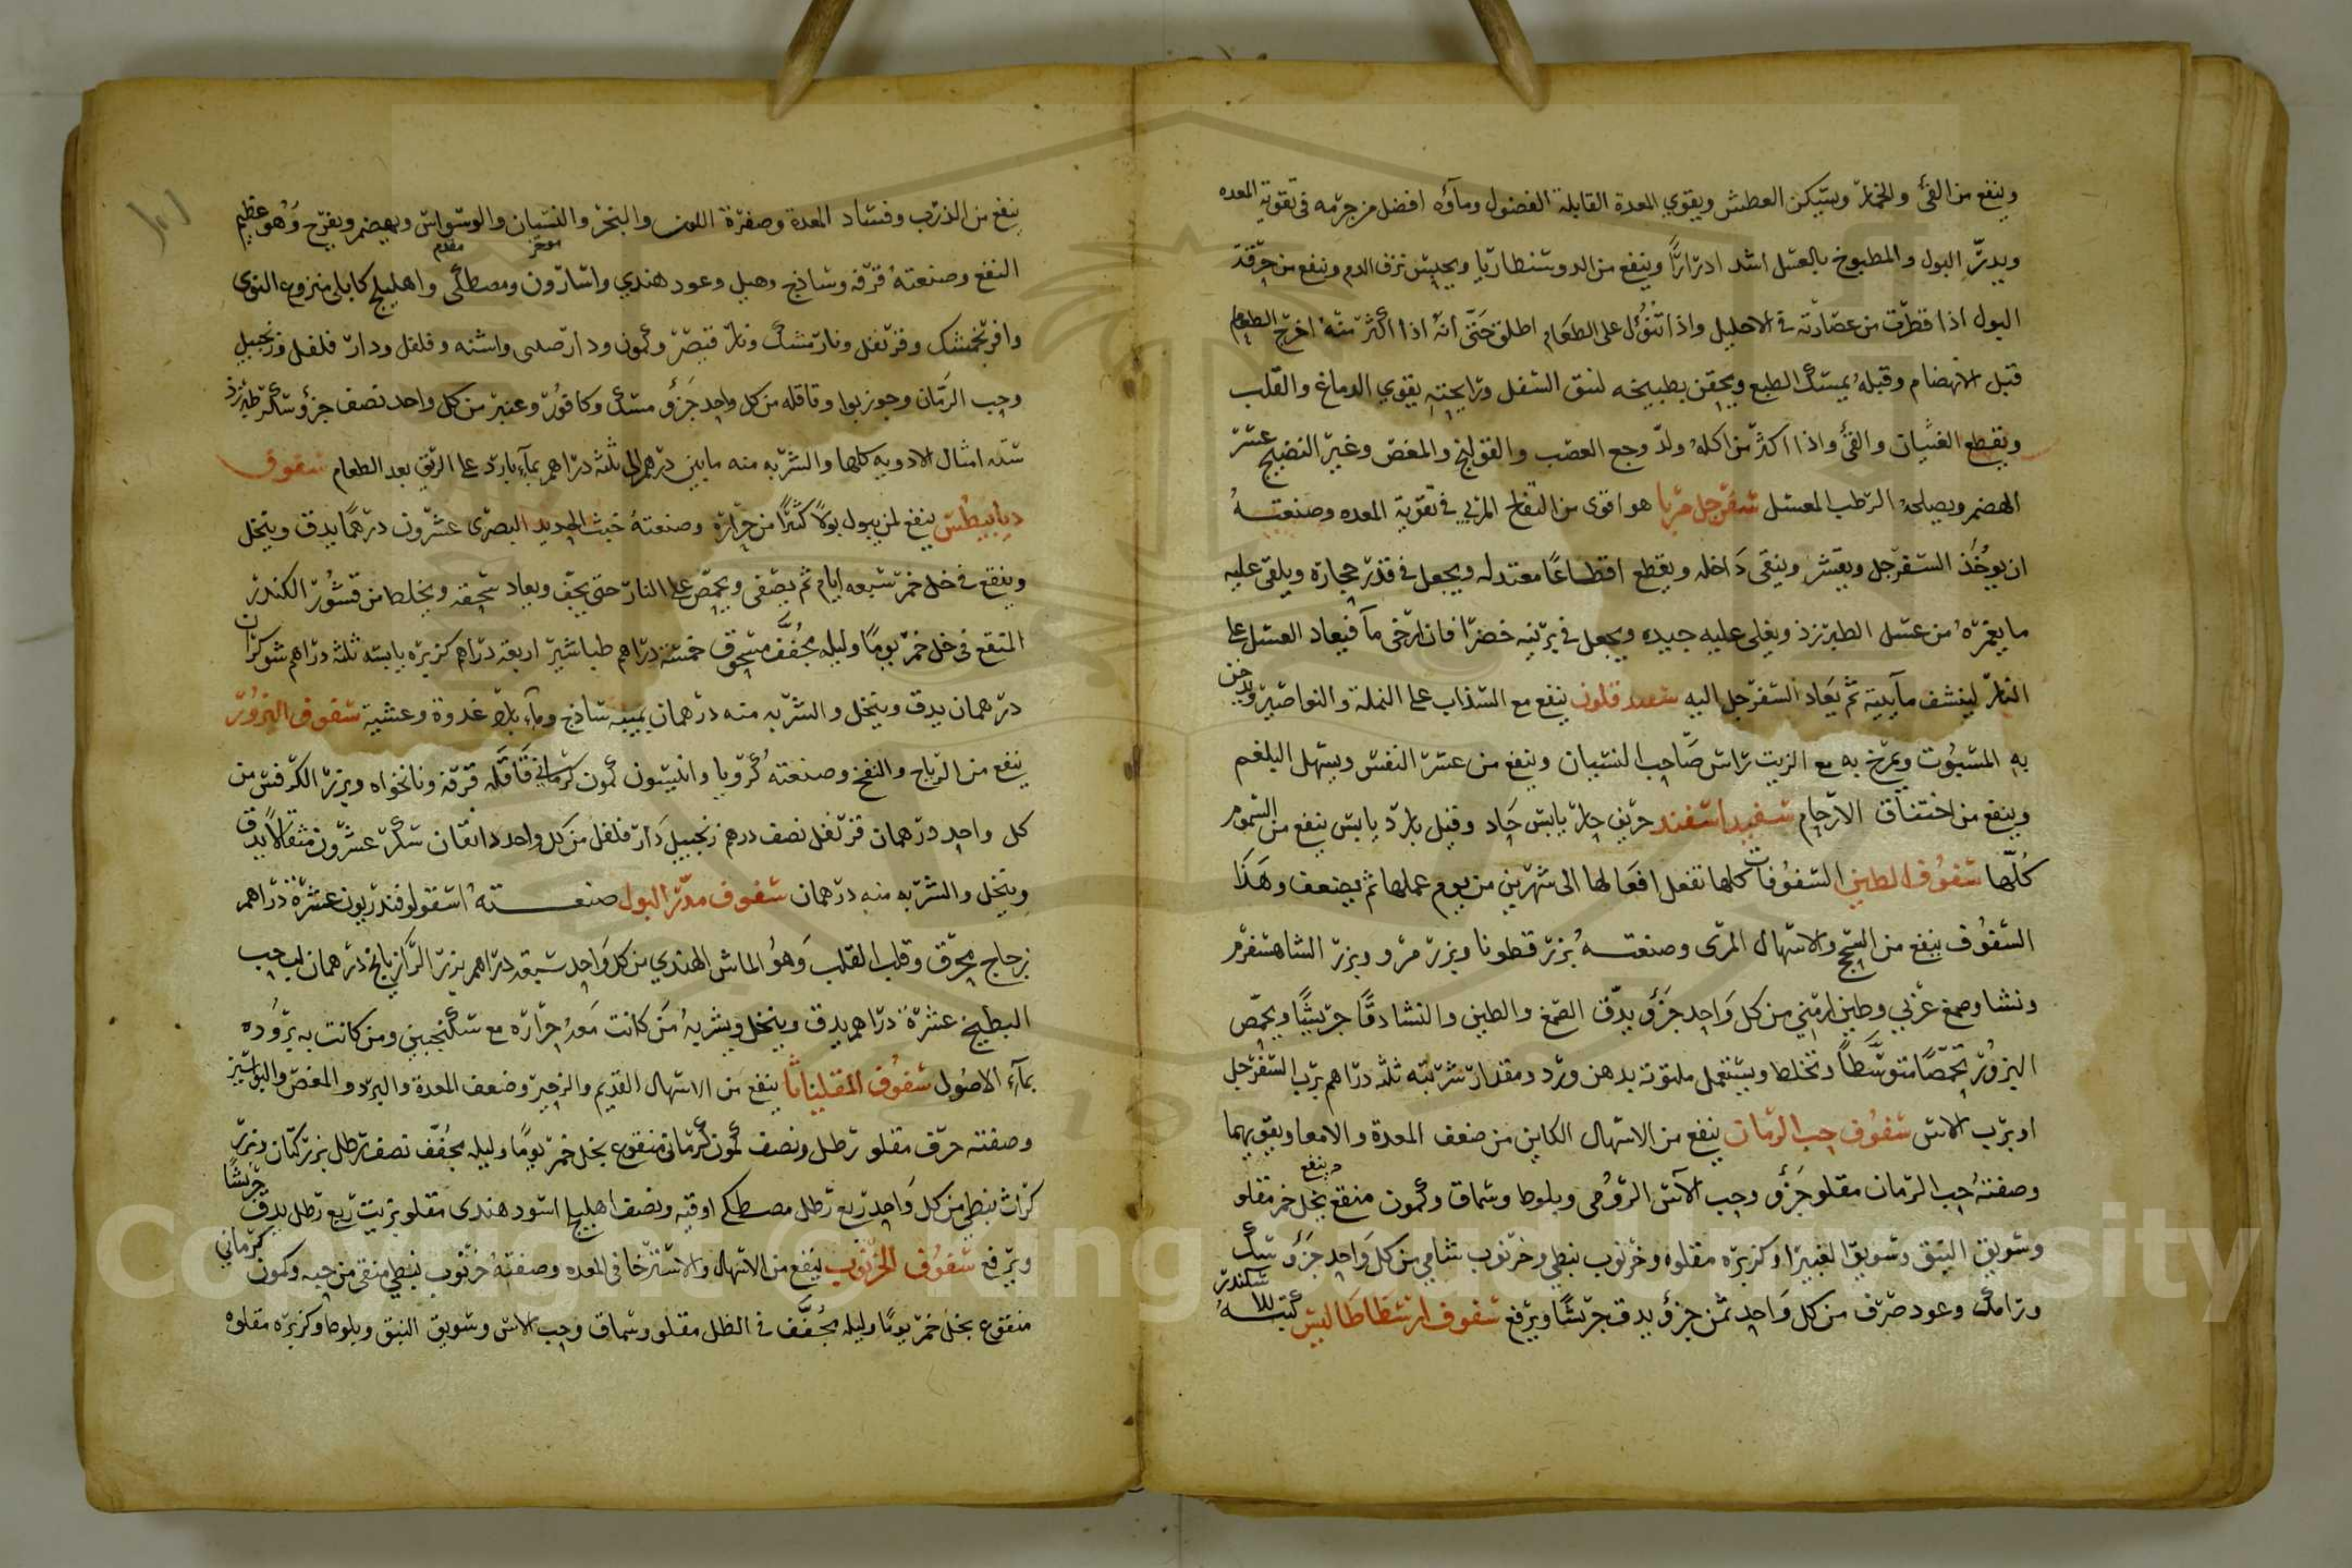 وينفع من القئ والخمار ويسكن العطش ويقوي المعدة القابلة الفضول وماؤه افضل من جرمه في تقوية المعده
ويدر البول والمطبوخ بالعسل اشد ادرارًا وينفع من الدوسنطاريا ويحبس نزف الدم وينفع من حرقة
البول اذا قطرت من عصارته في الاحليل واذا تنؤل على الطعام اطلق حتى انه اذا اكثر منه اخرج الطعام
قبل الانهضام وقبله يمسك الطبع ويحقن بطبيخه لنتق السفل ورايحته يقوي الدماغ والقلب
ويقطع الغثيان والقئ واذا اكثر من اكله ولد وجع العصب والقولنج والمغص وغير النضيج عسر
الهضم ويصلحه الرطب المعسل سفرجل مربا هو اقوى من التفاح المربي في تقوية المعده وصنعته
ان يوخذ السفرجل ويقشر وينقى داخله ويقطع اقطاعًا معتدله ويجعل في قدر حجارة ويلقى عليه
ما يغمره من عسل الطبرزذ ويغلى عليه جيده ويجعل في برنيه خضرا فان ارخى مآ فيعاد العسل على
النار لينشف مآييته ثم يعاد السفرجل اليه سفندقلون ينفع مع السذاب على النملة والنواصير ويدخن
به المسبوت ويمرخ به مع الزيت راس صاحب النسيان وينفع من عسر النفس ويسهل البلغم
وينفع من اختناق الارحام سفيداسفند حريف حار يابس حاد وقيل بارد يابس ينفع من السموم
كلها سفوف الطين السفوفات كلها تفعل افعالها الى شهرين من يوم عملها ثم يضعف وهذا
السفوف ينفع من السحج والاسهال المرى وصنعته بزر قطونا وبزر مرو وبزر الشاهسفرم
ونشا وصمغ عربي وطين ارمني من كل واحد جزؤ يدق الصمغ والطين والنشا دقًا جريشًا ويحمص
البزور تحمصًا متوسطًا وتخلط ويستعمل ملتوته بدهن ورد ومقدار شربته ثلثه دراهم برب السفرجل
او برب الاس سفوف حب الرمان ينفع من الاسهال الكاين من ضعف المعدة والامعا ويقويهما
وصفته حب الرمان مقلو جزؤ وحب الآس الرومى وبلوط وسماق وكمون منقع بخل خمر مقلو وينفع
وسويق النبق وسويق الغبيرا وكزبره مقلوه وخرنوب نبطي وخرنوب شامي من كل واحد جزؤ سك
ورامك وعود صرف من كل واحد ثمن جزؤ يدق جريشًا ويرفع سفوف ارسطاطاليس كتبه للاسكندر
ينفع من الذرب وفساد المعدة وصفرة اللون والبخر والنسيان والوسواس ويهضم ويفرح وهو عظيم
النفع وصنعته قرفه وساذج وهيل وعود هندي واسارون ومصطكى واهليلج كابلي منزوع النوى موخر مقدم
وافرنجمشك وقرنفل ونارمشك ونار قيصر وكمون ودارصينى واشنه وفلفل ودار فلفل وزنجبيل
وحب الرمان وجوزبوا وقاقله من كل واحد جزؤ مسك وكافور وعنبر من كل واحد نصف جزؤ سكر طبرزذ
سته امثال الادويه كلها والشربه منه مابين درهم الى ثلثه دراهم بمآء بارد على الريق بعد الطعام سفوف
ديابيطس ينفع لمن يبول بولًا كثيرًا من حراره وصنعته خبث الحديد البصرى عشرون درهمًا يدق وينخل
وينقع في خل خمر سبعه ايام ثم يصفى ويحمص على النار حتى يجف ويعاد سحقه ويخلط من قشور الكندر
المنقع في خل خمر يومًا وليله مجفف مسحوق خمسة دراهم طباشير اربعة دراهم كزبره يابسه ثلثه دراهم شوكران
درهمان يدق وينخل والشربه منه درهمان بميبه ساذج ومآء بارد غدوة وعشية سفوف البزور
ينفع من الرياح والنفخ وصنعته كرويا وانيسون كمون كرماني قاقله قرفه ونانخواه وبزر الكرفس من
كل واحد درهمان قرنفل نصف درهم زنجبيل دار فلفل من كل واحد دانقان سكر عشرون مثقالًا يدق
وينخل والشربه منه درهمان سفوف مدر البول صنعته اسقولوفندريون عشرة دراهم
زجاج محرق وقلب القلب وهو الماش الهندي من كل واحد سبعه دراهم بزر الرازيانج درهمان لب حب
البطيخ عشرة دراهم يدق وينخل ويشربه من كانت معه حراره مع سكنجبين ومن كانت به بروده
بمآء الاصول سفوف المقلياثا ينفع من الاسهال القديم والزحير وضعف المعدة والبرد والمغص والبواسير
وصفته حرف مقلو رطل ونصف كمون كرماني منقوع بخل خمر يومًا وليله مجفف نصف رطل بزر كتان وبزر
كراث نبطي من كل واحد ربع رطل مصطكي اوقيه ونصف اهليلج اسود هندى مقلو بزيت ربع رطل يدق جريشًا
ويرفع سفوف الخرنوب ينفع من الاسهال والاسترخا في المعده وصفته خرنوب نبطي منقى من حبه وكمون كرماني
منقوع بخل خمر يومًا وليله مجفف في الظل مقلو وسماق وحب الاس وسويق النبق وبلوط وكزبره مقلوه